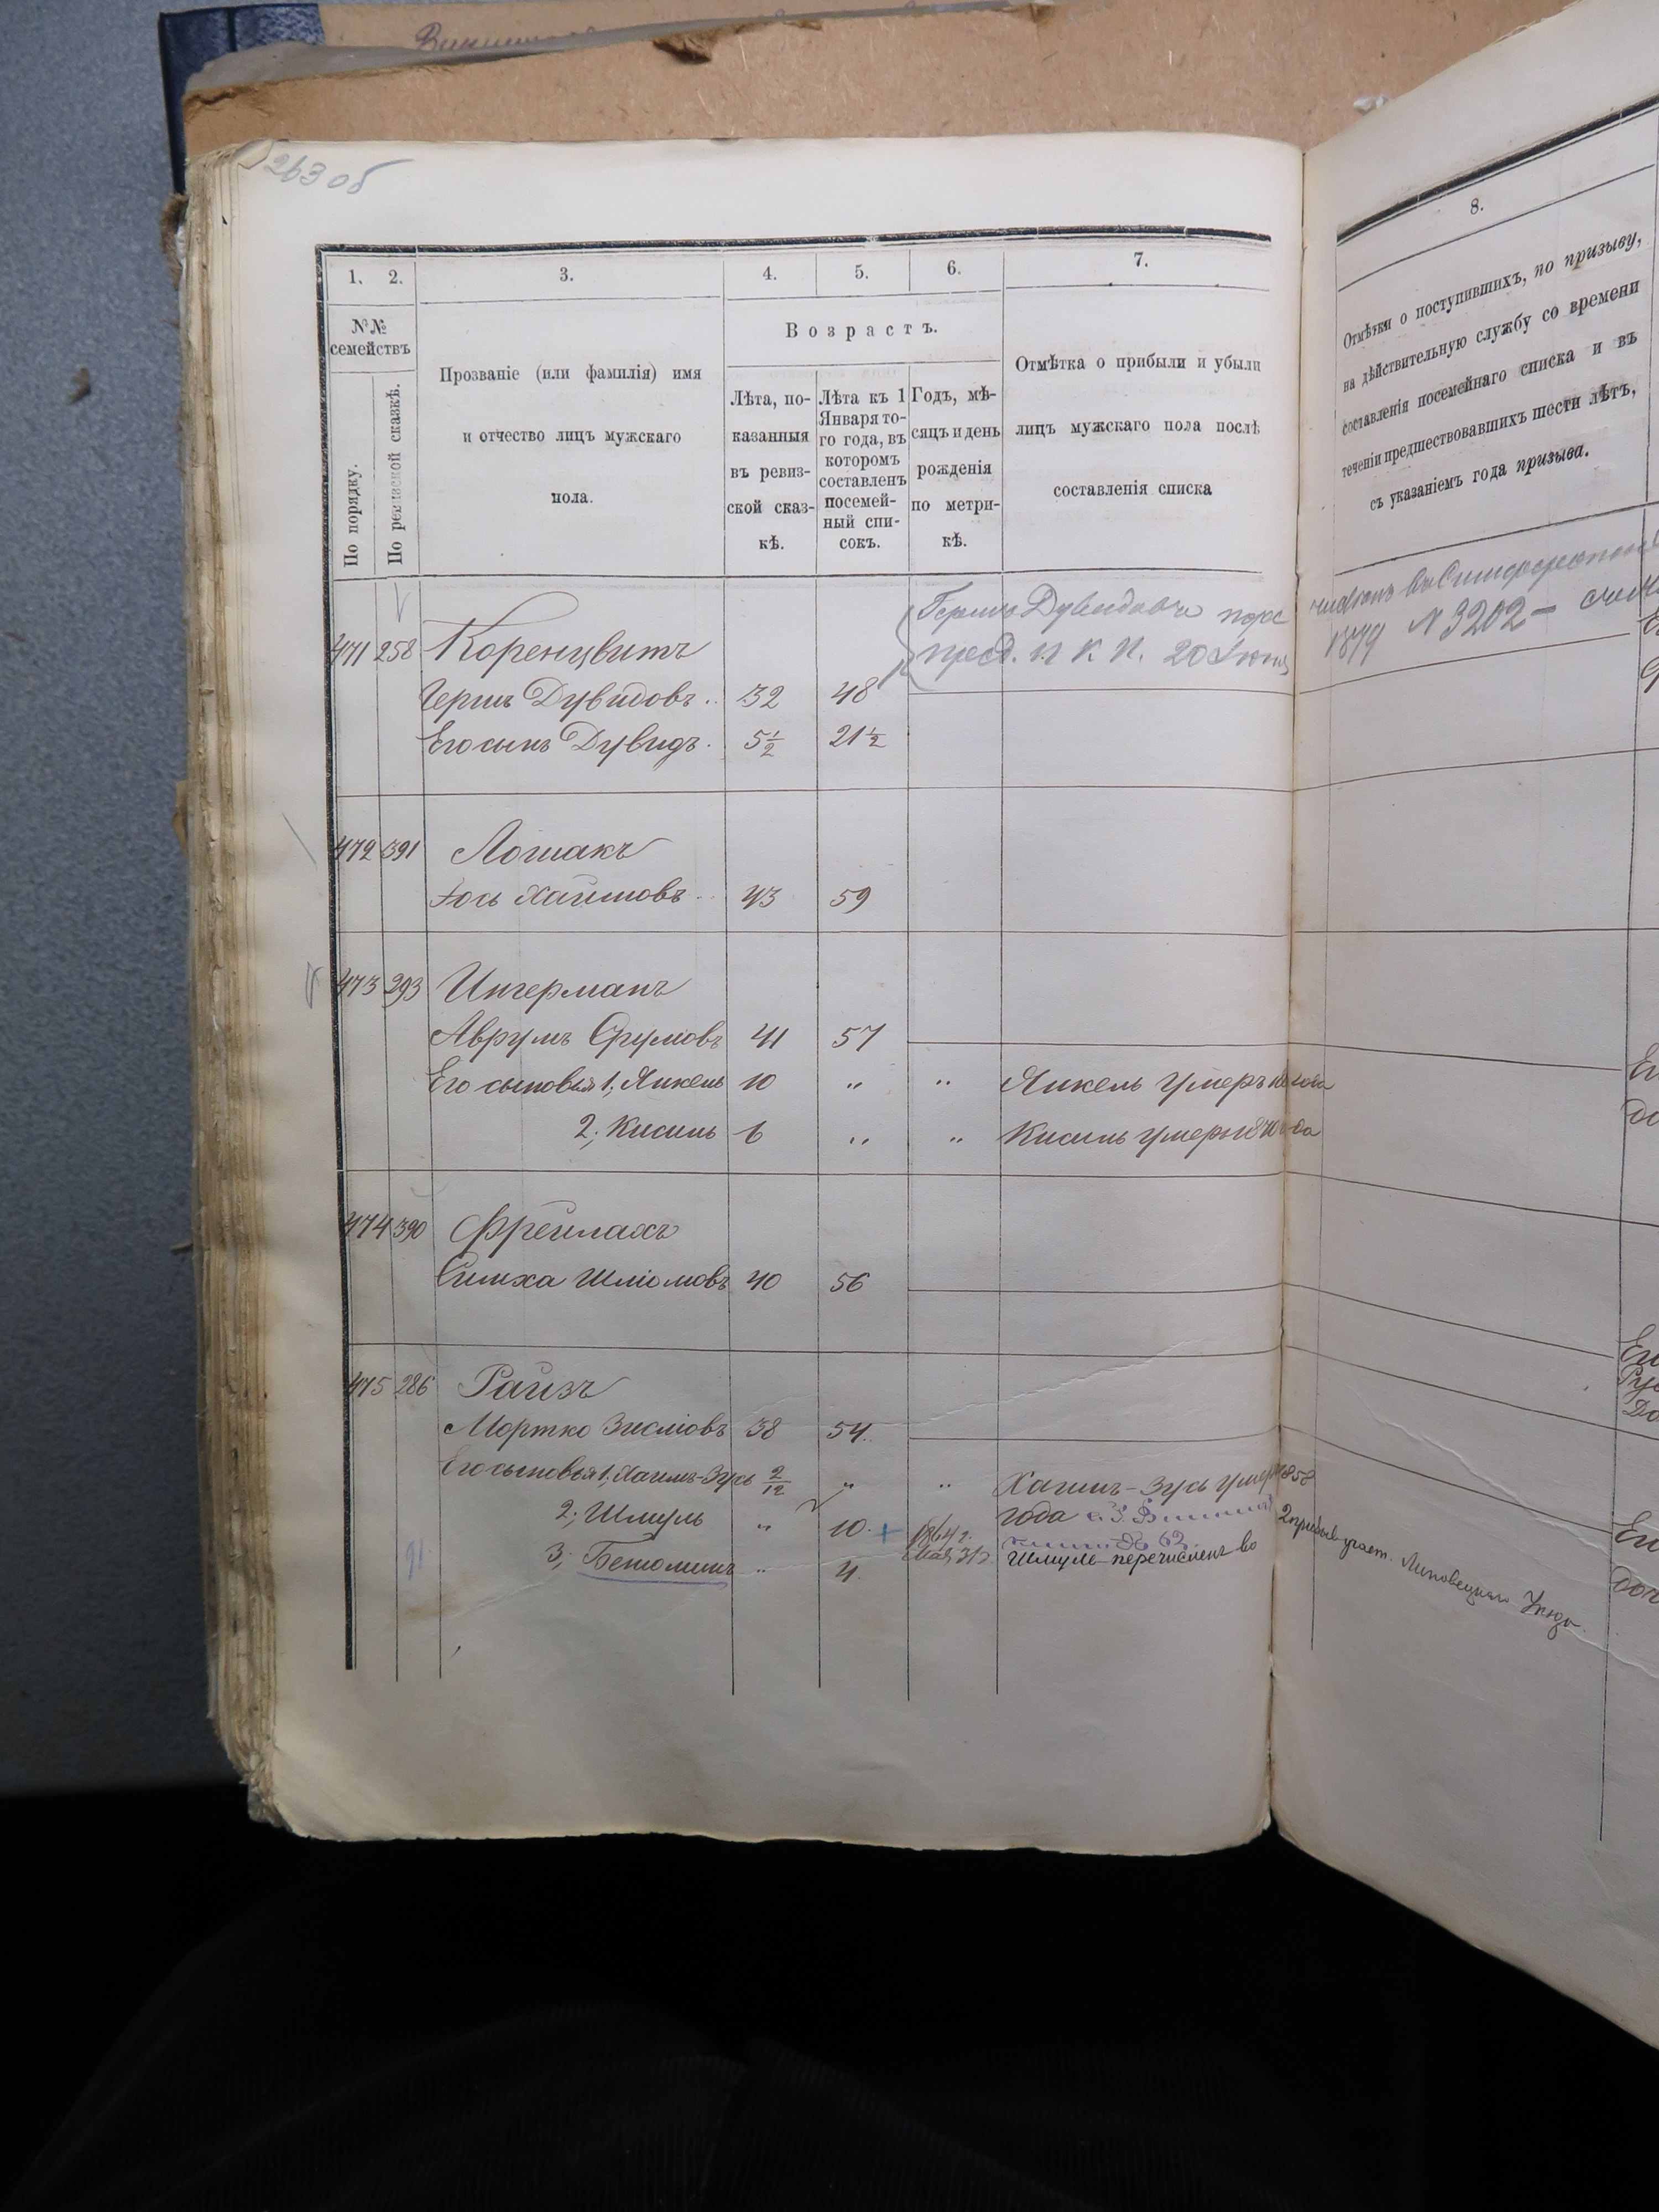 263 об
1. 2. 3. 4. 5. 6. 7.
№№ семействъ
По порядку.
По ревизской сказкѣ.
Прозваніе (или фамилія) имя
и отчество лицъ мужскаго
пола.
Возрастъ.
Лѣта, по-
казанныя
въ ревиз-
ской сказ-
кѣ.
Лѣта къ 1
Января то-
го года, въ
которомъ
составленъ
посемей-
ный спи-
сокъ.
Годъ, мѣ-
сяцъ и день
рожденія
по метри-
кѣ.
Отмѣтка о прибыли и убыли
лицъ мужскаго пола послѣ
составленія списка
Гершъ Дувидовъ
471 258 Коренцвитъ
20 Іюня
Гершъ Дувидовъ 32 48
Его сынъ Дувидъ 5½ 21½
472 391 Лошакъ
Іось Хаимовъ 43 59
473 293 Ингерманъ
Аврумъ Срулiовъ 41 57
Его сыновья 1, Янкель 10 " " Янкель умеръ года
2; Кисиль 6 " " Кисиль умеръ 1870 года
474 390 Фрейлахъ
Симха Шліомовъ 40 56
475 286 Райзъ
Мортко Зисліовъ 38 54
Его сыновья 1, Хаимъ-Зусь 2/12 " " Хаимъ-Зусь умеръ 1858
2; Шмуль " 10 + 1864 г. года
3; Беніоминъ " 4 Мая 31 Шмуль перечисленъ во
2 призыв. участ. Липовецкаго Уѣзда.
8.
Отмѣтки о поступившихъ, по призыву,
на дѣйствительную службу со времени
составленія посемейнаго списка и въ
теченіи предшествовавшихъ шести лѣтъ,
съ указаніемъ года призыва.
1879 № 3202 –